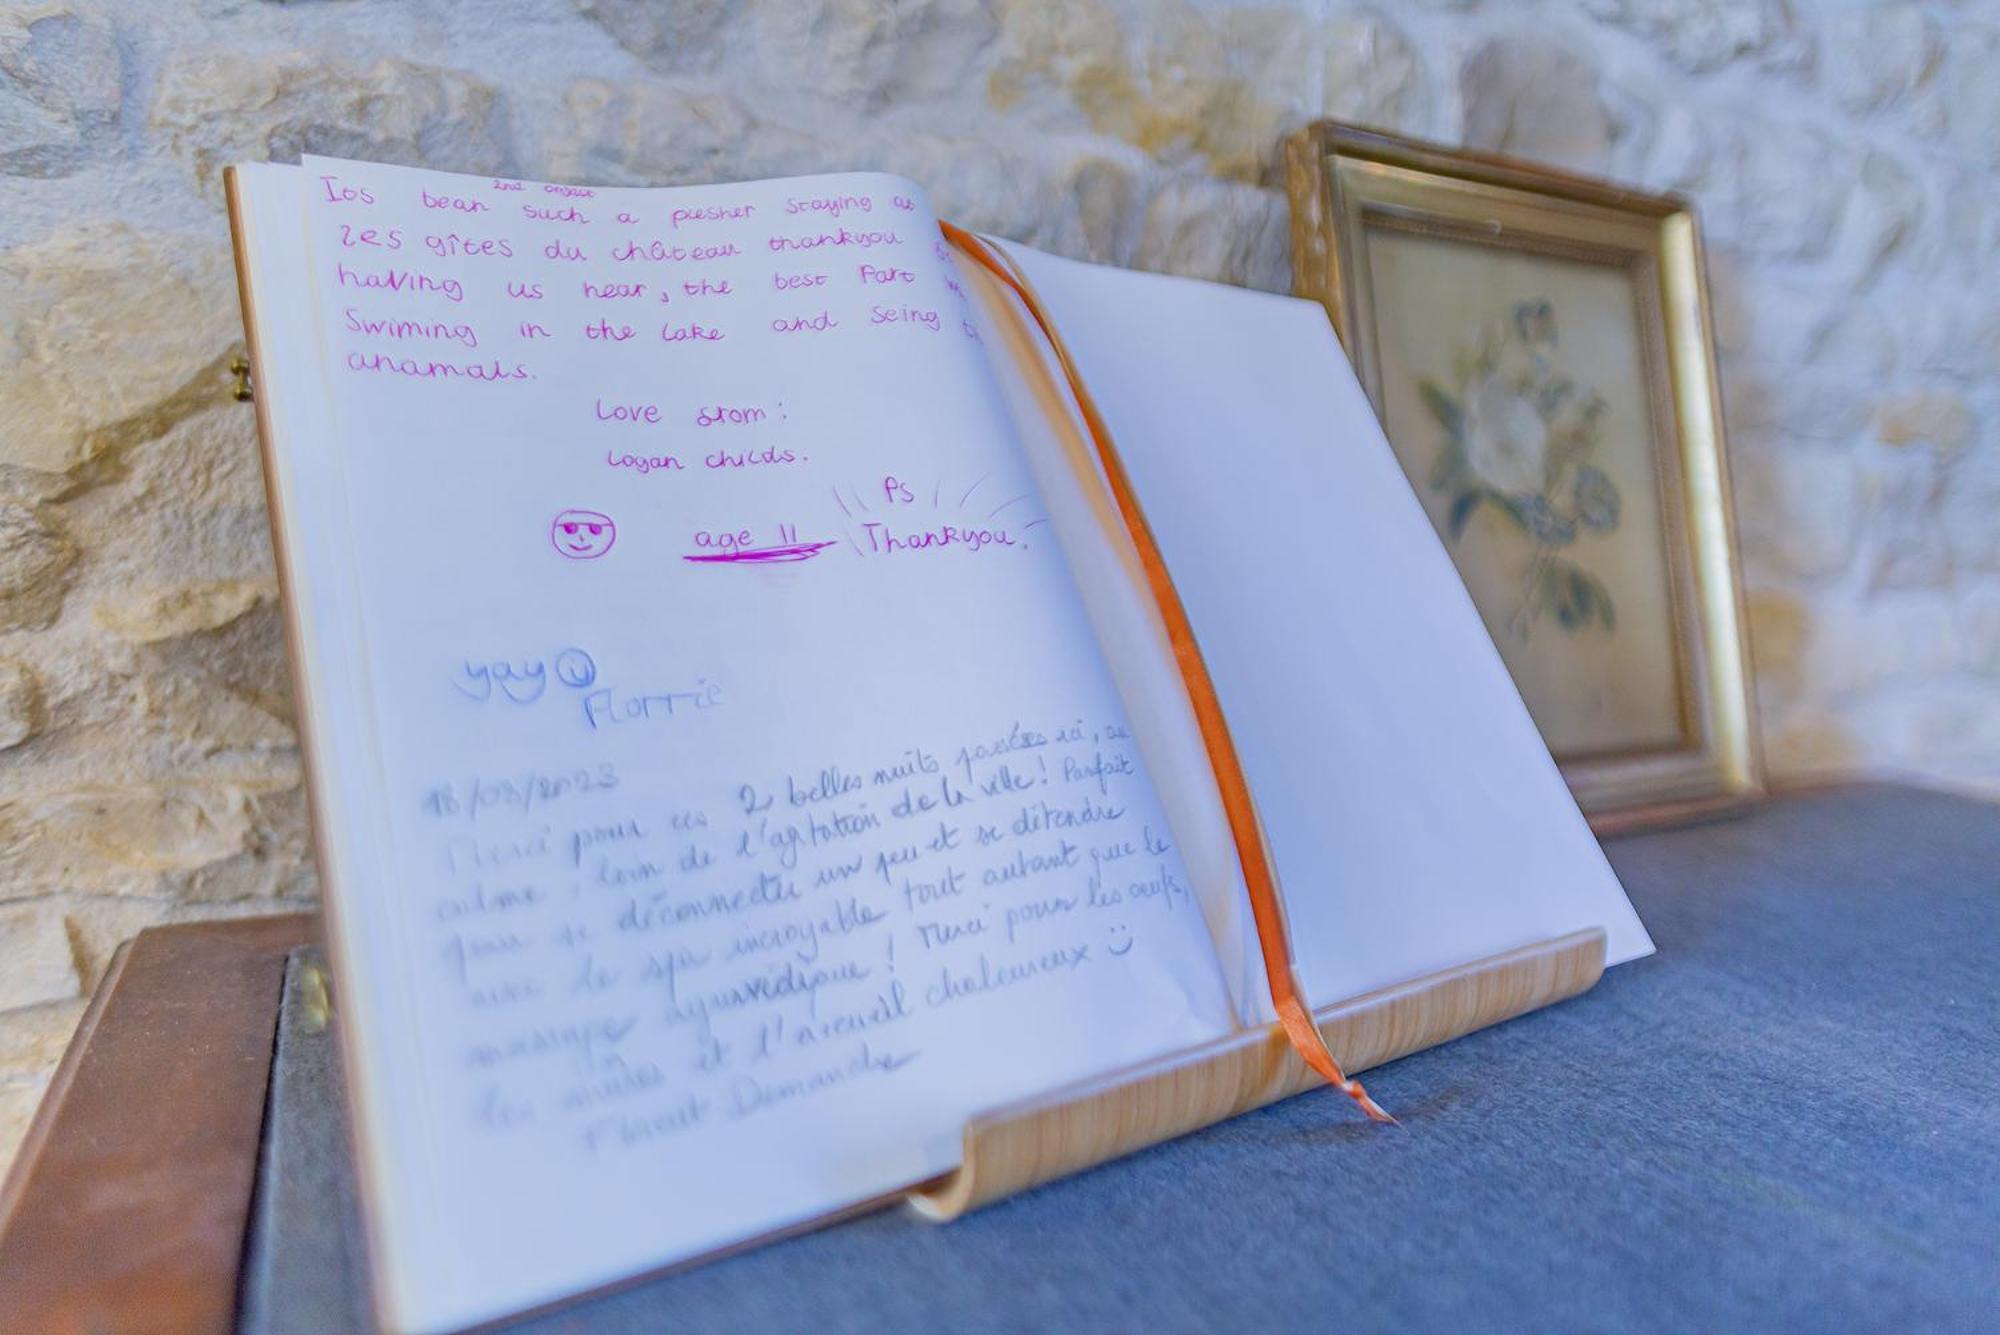 2nd
Its bean such a plesher staying at
les gîtes du château thankyou
having us hear, the best Part
Swiming in the lake and seing
anamals.
Love from:
Logan childs.
Ps
age 11 Thankyou.
yay
Florrie
18/03/2023
Merci pour ces 2 belles nuits passées ici, au
calme, loin de l'agitation de la ville! Parfait
pour se déconnecter un peu et se détendre
avec le spa incroyable tout autant que le
massage ayurvédique! Merci pour les oeufs,
les et l'accueil chaleureux :)